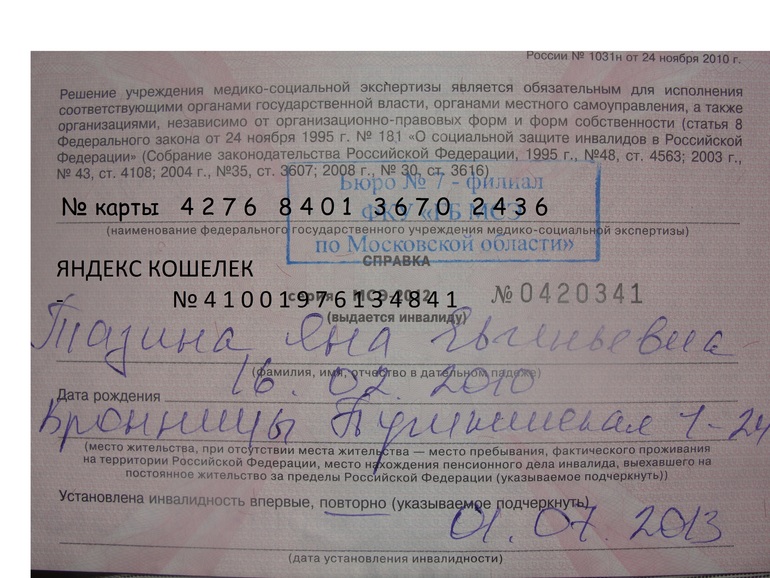 России № 1031н от 24 ноября 2010 г.
Решение учреждения медико-социальной экспертизы является обязательным для исполнения
соответствующими органами государственной власти, органами местного самоуправления, а также
организациями, независимо от организационно-правовых форм и форм собственности (статья 8
Федерального закона от 24 ноября 1995 г. № 181 «О социальной защите инвалидов в Российской
Федерации» (Собрание законодательства Российской Федерации, 1995 г., №48, ст. 4563; 2003 г.,
№ 43, ст. 4108; 2004 г., №35, ст. 3607; 2008 г., № 30, ст. 3616)
Бюро № 7 - филиал
№ карты 4276 8401 3670 2436
ФКУ «ГБ МСЭ
(наименование федерального государственного учреждения медико-социальной экспертизы)
по Московской области»
СПРАВКА
ЯНДЕКС КОШЕЛЕК
- № 41001976134841
серия МСЭ-2012 № 0420341
(выдается инвалиду)
Тазина Яна Евгеньевна
(фамилия, имя, отчество в дательном падеже)
Дата рождения 16.02.2010
Бронницы Пушкинская 1-24
(место жительства, при отсутствии места жительства — место пребывания, фактического проживания
на территории Российской Федерации, место нахождения пенсионного дела инвалида, выехавшего на
постоянное жительство за пределы Российской Федерации (указываемое подчеркнуть))
Установлена инвалидность впервые, повторно (указываемое подчеркнуть)
01.07.2013
(дата установления инвалидности)